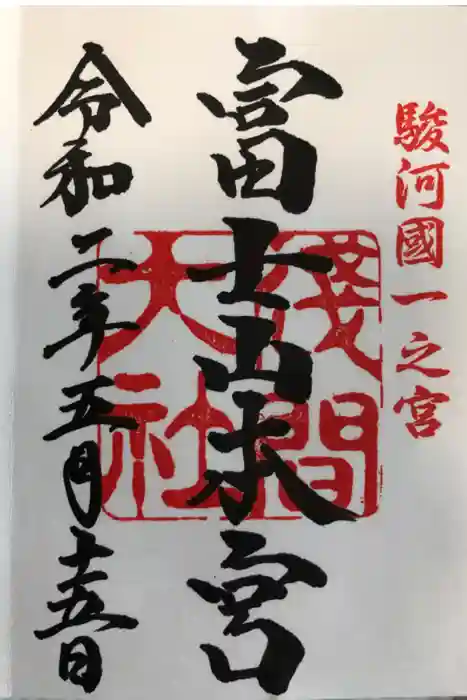 駿河國一之宮
富士山本宮
淺間大社
令和二年五月十五日